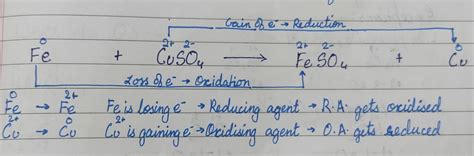 Gain of e⁻ → Reduction
0 2+ 2- 2+ 2- 0
Fe + CuSO₄ → FeSO₄ + Cu
Loss of e⁻ → Oxidation
0 2+
Fe → Fe Fe is losing e⁻ → Reducing agent → R.A. gets oxidised
2+ 0 2+
Cu → Cu Cu is gaining e⁻ → Oxidising agent → O.A. gets reduced